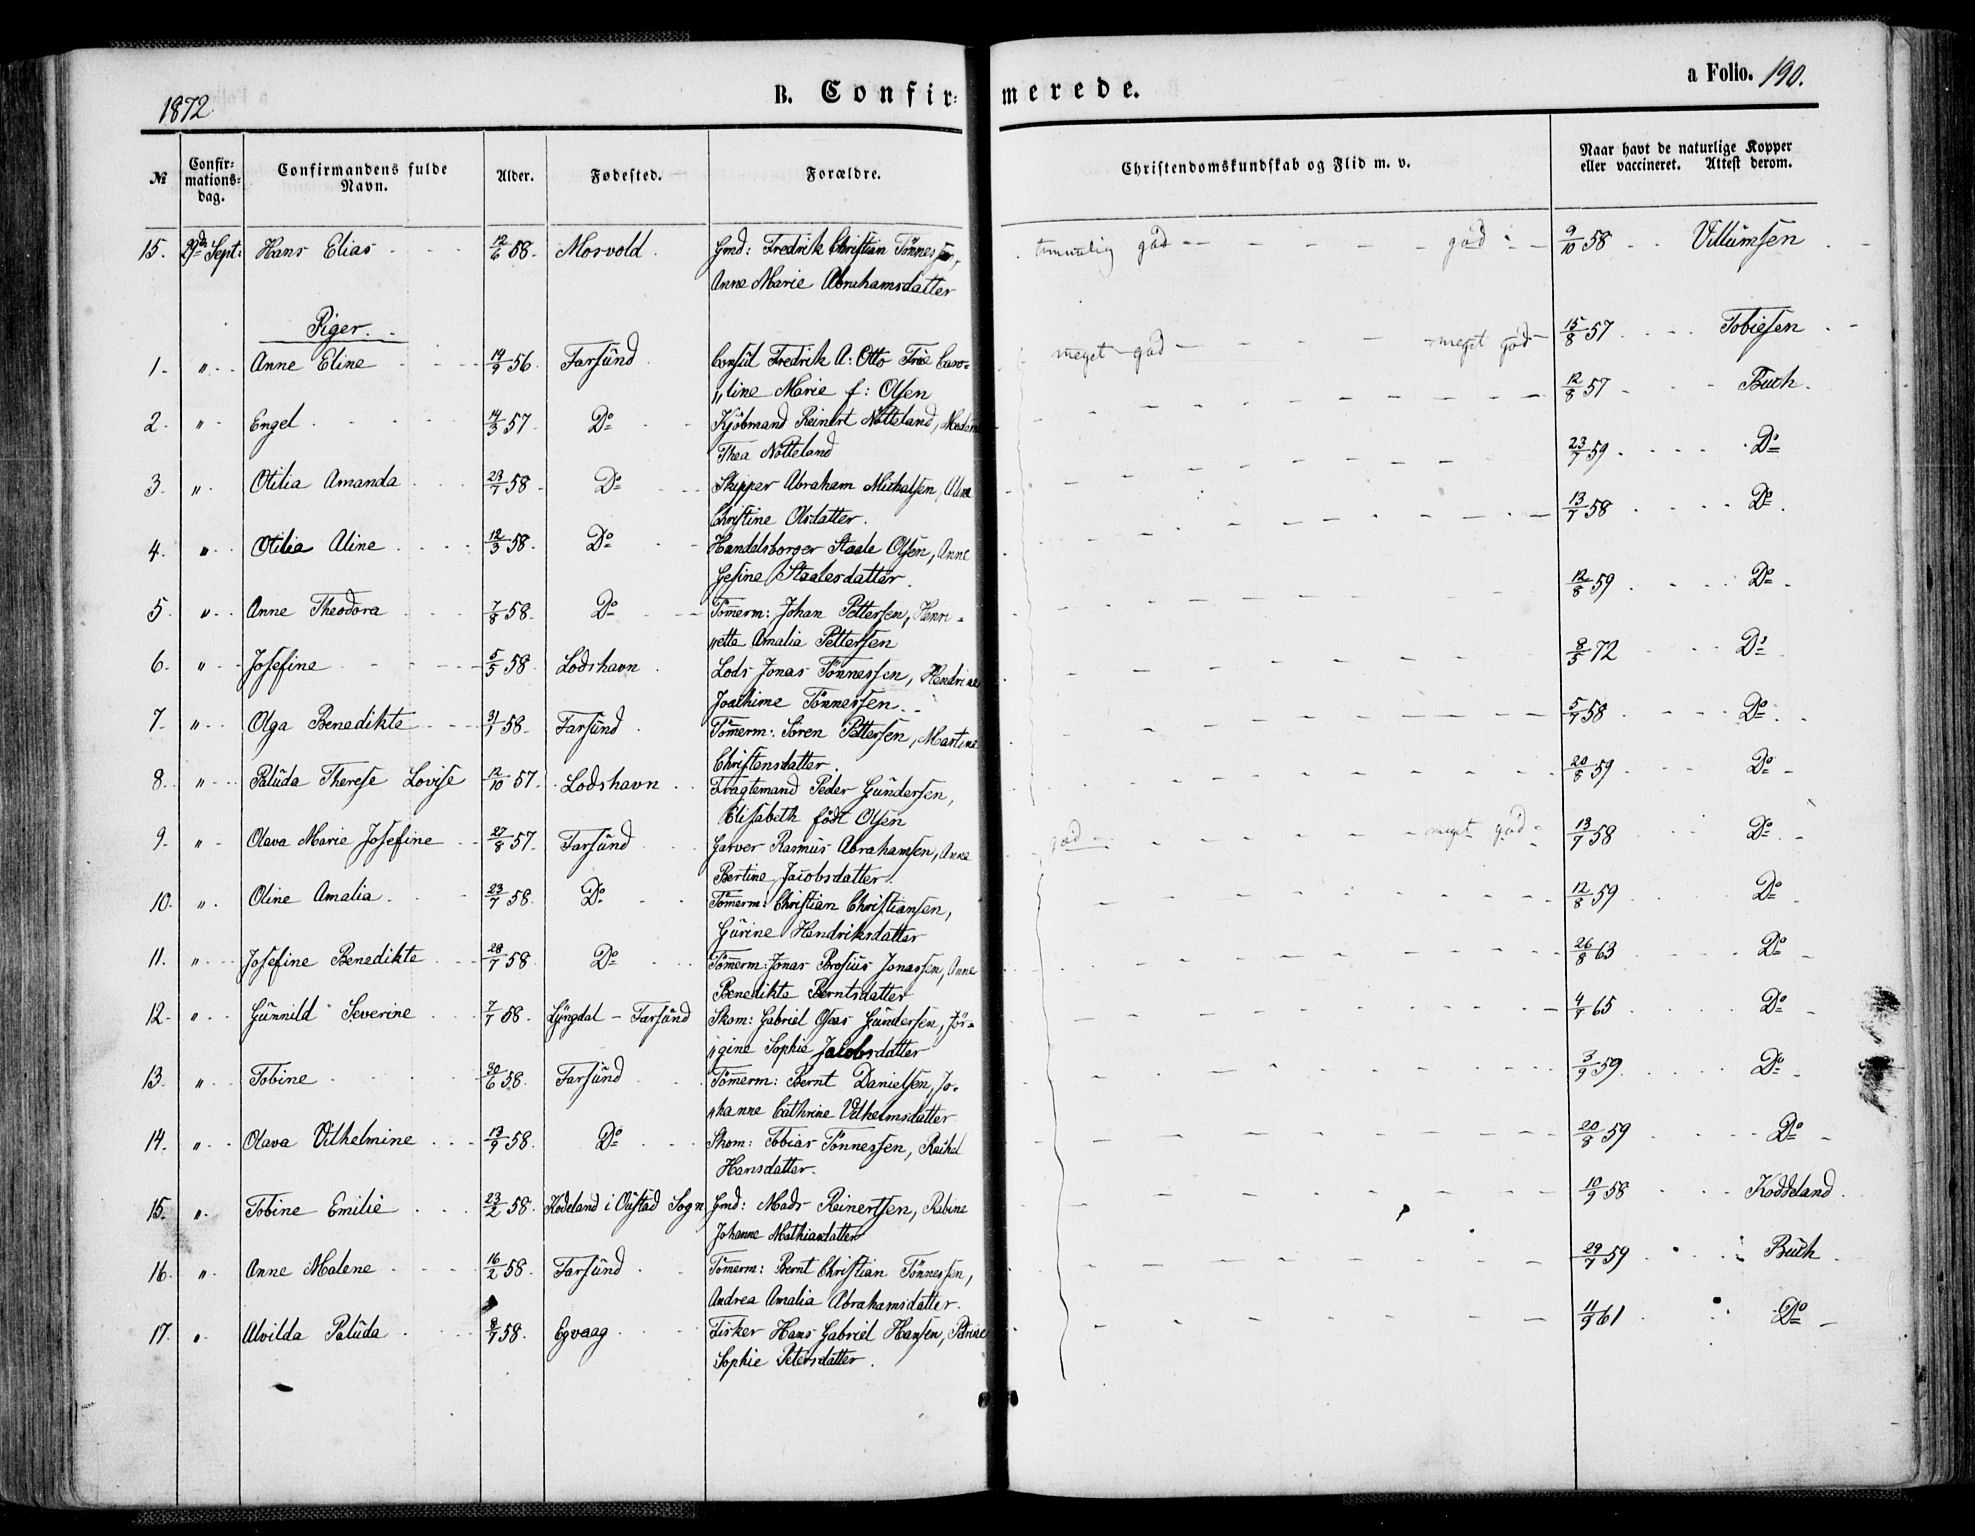 1872. B. Confir- merede. a Folio. 190.
№ Confir-mations-dag. Confirmandens fulde Navn. Alder. Fødested. Forældre. Christendomskundskab og Flid m. v. Naar havt de naturlige Kopper eller vaccineret. Attest derom.
15. 29de Sept: Hans Elias 12/6 58. Morvold. Gmd: Fredrik Christian Tönnessen, temmelig god god 9/10 58 Villumsen
Anne Marie Abrahamsdatter
Piger.
1. " Anne Eline 14/9 56. Farsund. Consul Fredrik A: Otto Caro- meget god meget god 15/8 57. Tobiesen
"line Marie f: Olsen
2. " Engel 14/3 57. Do Kjöbmand Reinert Nötteland, 12/8 57 Buch.
Thea Nötteland
3. " Otilia Amanda 23/7 58 Do Skipper Abraham Michalsen, 23/7 59. Do
Christine Olsdatter.
4. " Otilia Aline 12/3 58. Do Handelsborger Staale Olsen, Anne 13/7 58 Do.
Gesine Staalesdatter.
5. " Anne Theodora 7/8 58. Do Tömerm: Johan Pettersen, Henri- 12/8 59 Do
"ette Amalia Pettersen
6. " Josefine 5/5 58. Lodshavn. Lods Jonas Tönnessen, 8/5 72 Do
Joachime Tönnessen.
7. " Olga Benedikte 31/7 58. Farsund. Tömerm: Sören Pettersen, Martine 5/7 58 Do
Christensdatter.
8. " Paluda Therese Lovise 12/10 57. Lodshavn Fragtemand Peder Gundersen, 20/8 59 Do
Elisabeth födt Olsen
9. " Olava Marie Josefine 27/8 57. Farsund Garver Rasmus Abrahamsen, Anne god meget god 13/7 58 Do
Bertine Jacobsdatter.
10. " Oline Amalia 23/7 58. Do Tömerm: Christian Christiansen, 12/8 59 Do
Gurine Hendriksdatter
11. " Josefine Benedikte 28/7 58 Do Tömerm: Jonas Brosius Jonassen, Anne 26/8 63 Do
Benedikte Berntsdatter
12. " Gunnild Severine 7/7 58. Lyngdal - Farsund Skom: Gabriel Oseas Gundersen, Jör- 4/7 65 Do
"gine Sophie Jacobsdatter
13. " Tobine 30/6 58. Farsund Tömerm: Bernt Danielsen, Jo- 3/9 59. Do
"hanne Cathrine Vilhelmsdatter
14. " Olava Vilhelmine 13/9 58. Do Skom: Tobias Tönnessen, Rachel 20/8 59 Do
Hansdatter.
15. " Tobine Emilie 23/2 58. Ködeland i Oustad Sogn Gmd: Mads Reinertsen, Rabine 10/9 58 Koddeland.
Johanne Mathiasdatter
16. " Anne Malene 16/2 58. Farsund Tömerm: Bernt Christian Tönnessen, 29/7 59 Buch
Andrea Amalia Abrahamsdatter.
17. " Alvilda Paluda 8/7 58. Egvaag Fisker Hans Gabriel Hansen, 11/9 61 Do
Sophie Petersdatter.